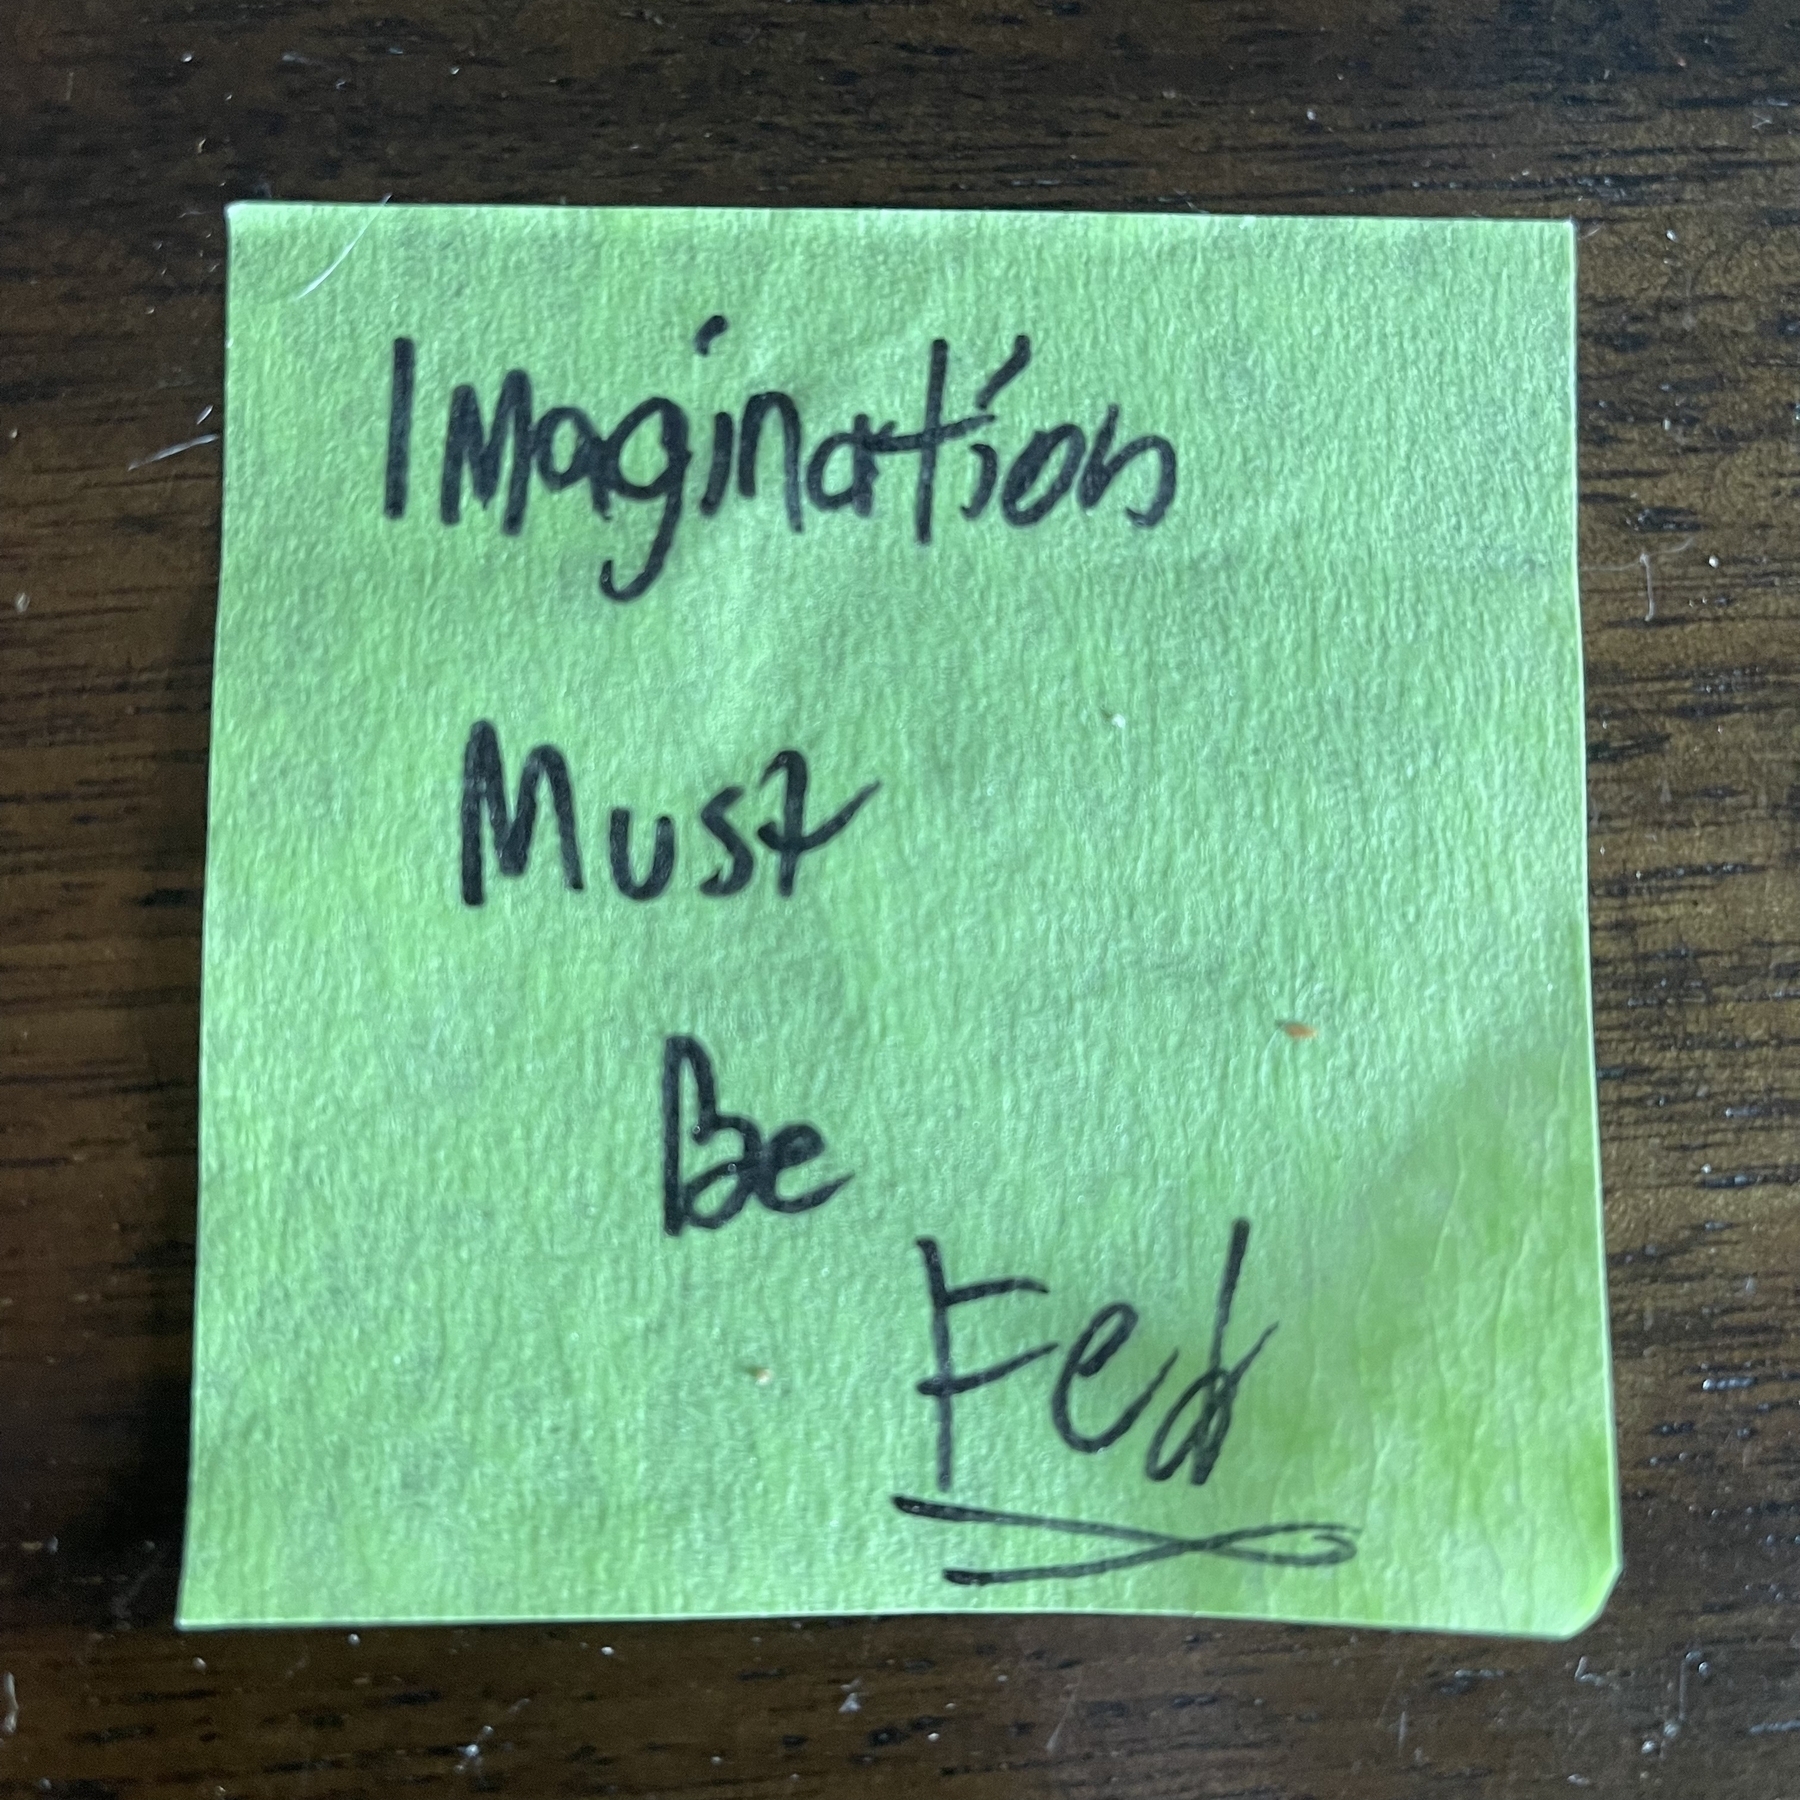 Imagination
Must
Be
Fed